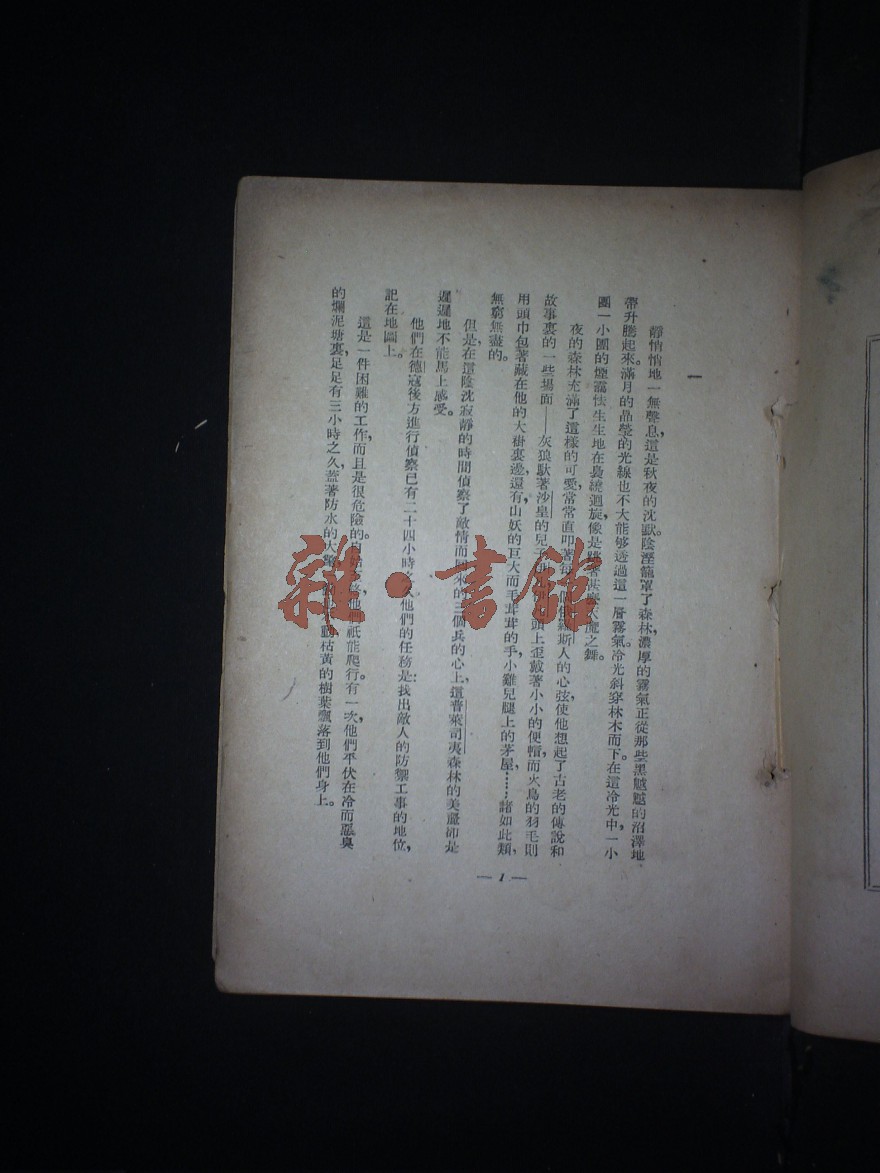 一
靜悄悄地一無聲息，這是秋夜的沈默。陰溼籠罩了森林，濃厚的霧氣正從那些黑魆魆的沼澤地
帶升騰起來。滿月的晶瑩的光線也不大能够透過這一層霧氣。冷光斜穿林木而下。在這冷光中，一小
團一小團的煙靄怯生生地在裊繞迴旋，像是跳着妖魔之舞。
夜的森林充滿了這樣的可愛，常常直叩著每一個俄羅斯人的心弦，使他想起了古老的傳說和
故事裏的一些場面——灰狼馱著沙皇的兒子，頭上歪戴著小小的便帽，而火鳥的羽毛則
用頭巾包著藏在他的大褂裏邊，還有，山妖的巨大而毛茸茸的手，小雞兒腿上的茅屋，……諸如此類，
無窮無盡的。
但是，在這陰沈寂靜的時間偵察了敵情而歸來的三個兵的心上，這普萊司夷森林的美麗卻是
遲遲地不能馬上感受。
他們在德寇後方進行偵察已有二十四小時之久。他們的任務是：找出敵人的防禦工事的地位，
記在地圖上。
這是一件困難的工作，而且是很危險的。自始至終，他們祇能爬行。有一次，他們平伏在冷而惡臭
的爛泥塘裏，足足有三小時之久，蓋著防水的大氅，枯黃的樹葉飄落到他們身上。
— 1 —
雜·書館